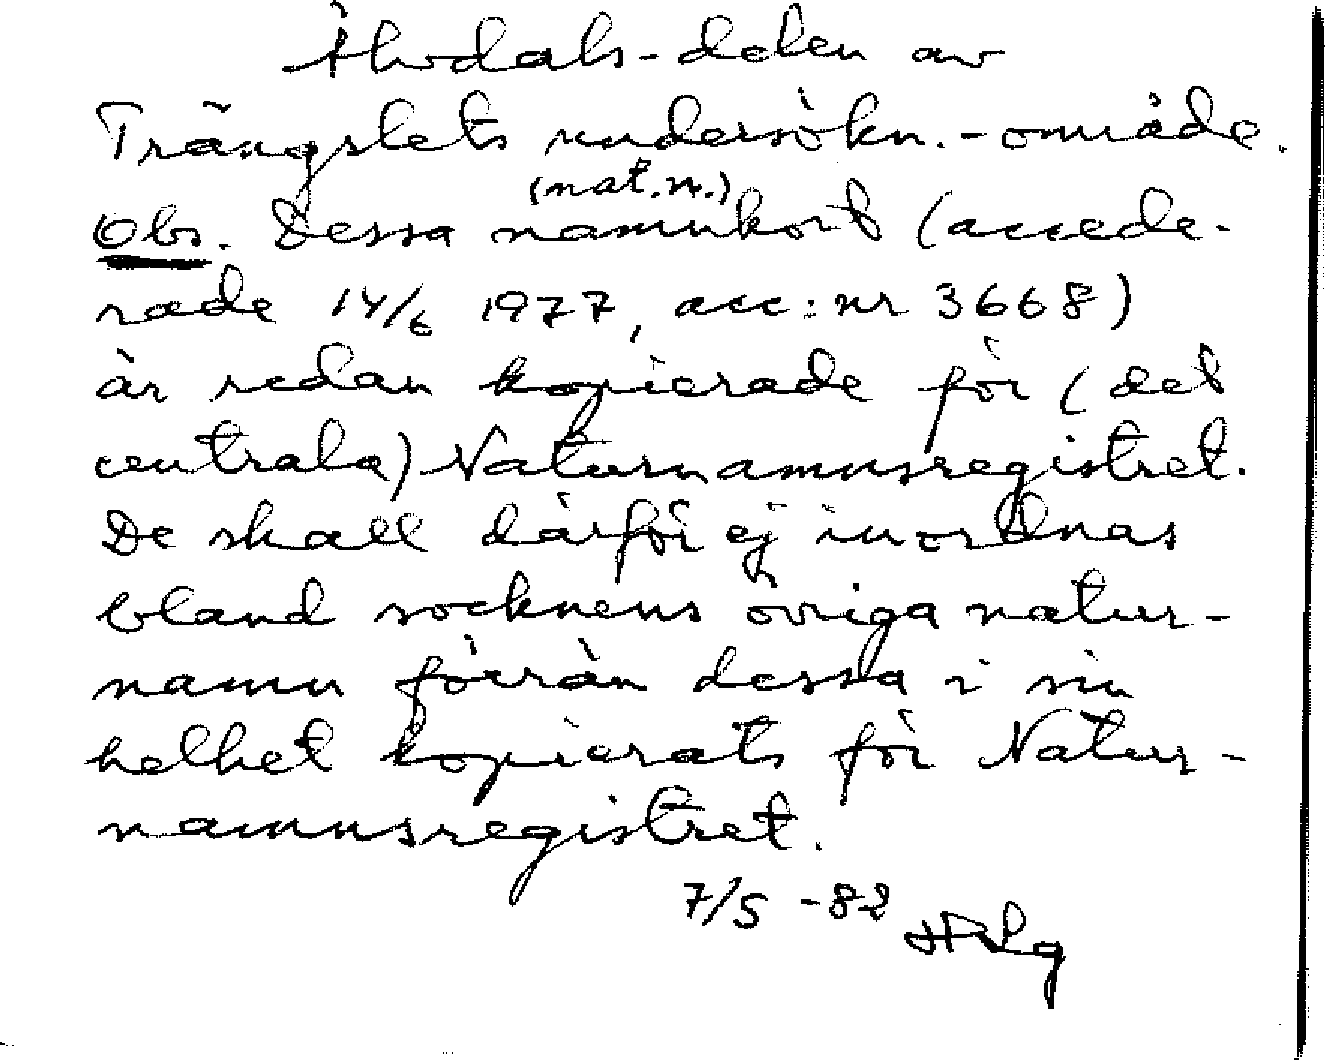 Älvdals-delen av
Trängslets undersökn.-område.
(nat.n.)
Obs. Dessa namnkort (accede-
rade 14/6 1977, acc:nr 3668)
är redan kopierade för (det
centrala) Naturnamnsregistret.
De skall därför ej inordnas
bland socknens övriga natur-
namn förrän dessa i sin
helhet kopierats för Natur-
namnsregistret.
7/5 -82